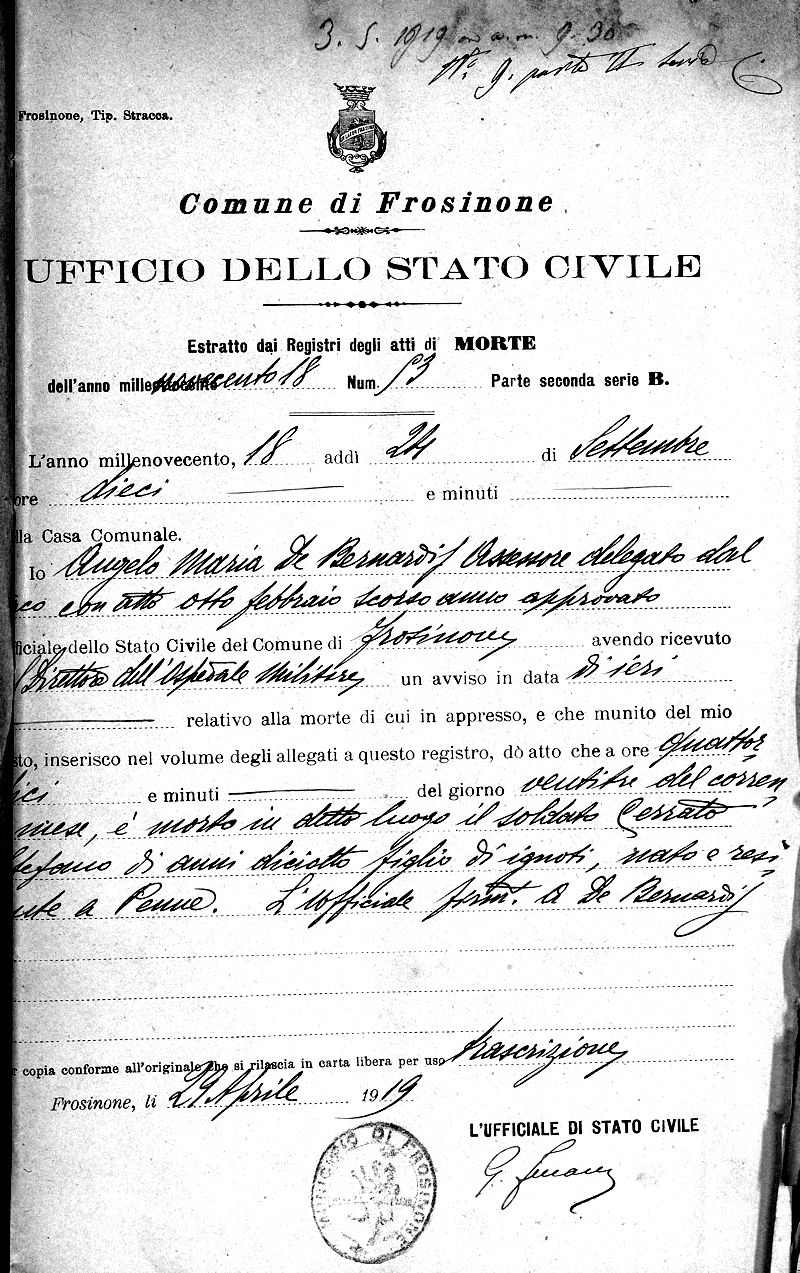 3. 5. 1919 a.m. 9-30
N° 9. parte II serie C
Frosinone, Tip. Stracca.
Comune di Frosinone
UFFICIO DELLO STATO CIVILE
Estratto dai Registri degli atti di MORTE
dell'anno millenovecento 18 Num. 53 Parte seconda serie B.
L'anno millenovecento, 18 addì 24 di Settembre
ore dieci e minuti
lla Casa Comunale.
Io Angelo Maria De Bernardis Assessore delegato dal
co con atto otto febbraio scorso anno approvato
ficiale dello Stato Civile del Comune di Frosinone avendo ricevuto
Direttore dell'Ospedale Militare un avviso in data di ieri
relativo alla morte di cui in appresso, e che munito del mio
sto, inserisco nel volume degli allegati a questo registro, dò atto che a ore quattor
dici e minuti del giorno ventitre del corren
mese, è morto in detto luogo il soldato Cerrato
tefano di anni diciotto figlio di ignoti, nato e resi
nte a Penne. L'Ufficiale firmt. A De Bernardis
r copia conforme all'originale che si rilascia in carta libera per uso trascrizione
Frosinone, li 29 Aprile 1919
L'UFFICIALE DI STATO CIVILE
MUNICIPIO DI FROSINONE